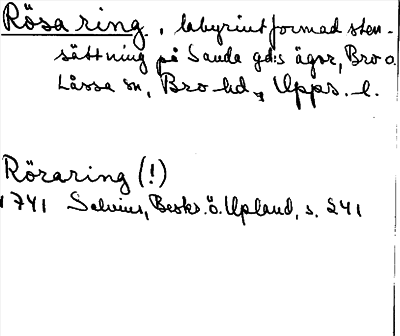 Rösa ring, labyrintformad sten-
sättning på Sanda gds ägor, Bro o.
Låssa sn, Bro hd, Upps. l.
Röraring (!)
1741 Salvius, Beskr. ö. Upland, s. 241